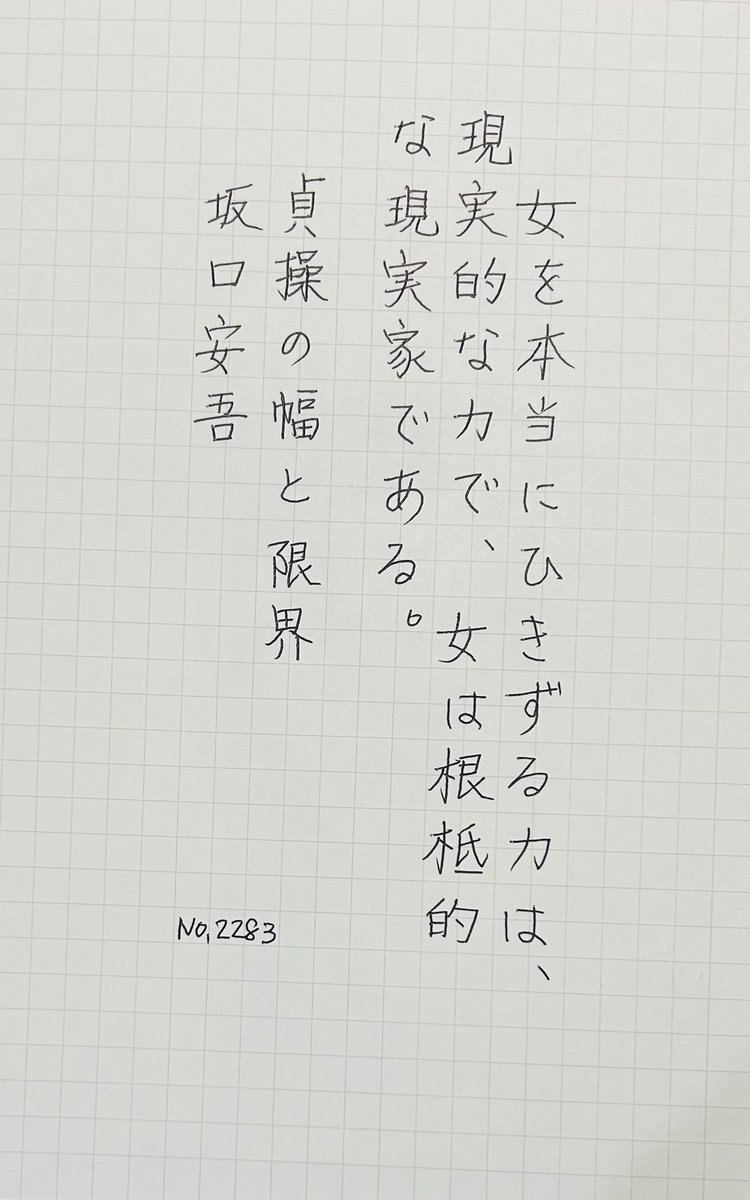 女を本当にひきずる力は、
現実的な力で、女は根柢的
な現実家である。
貞操の幅と限界
坂口安吾
No,2283